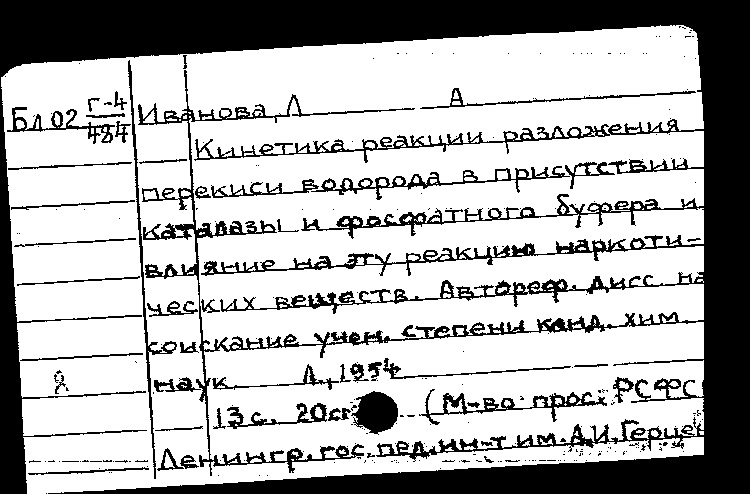 Бл 02 Г-4/484 Иванова, Л А
Кинетика реакции разложения
перекиси водорода в присутствии
каталазы и фосфатного буфера и
влияние на эту реакцию наркоти-
ческих веществ. Автореф. дисс. на
соискание учен. степени канд. хим.
наук. Л., 1954
13 с. 20 см (М-во прос. РСФС
Ленингр. гос. пед. ин-т им. А.И. Герце